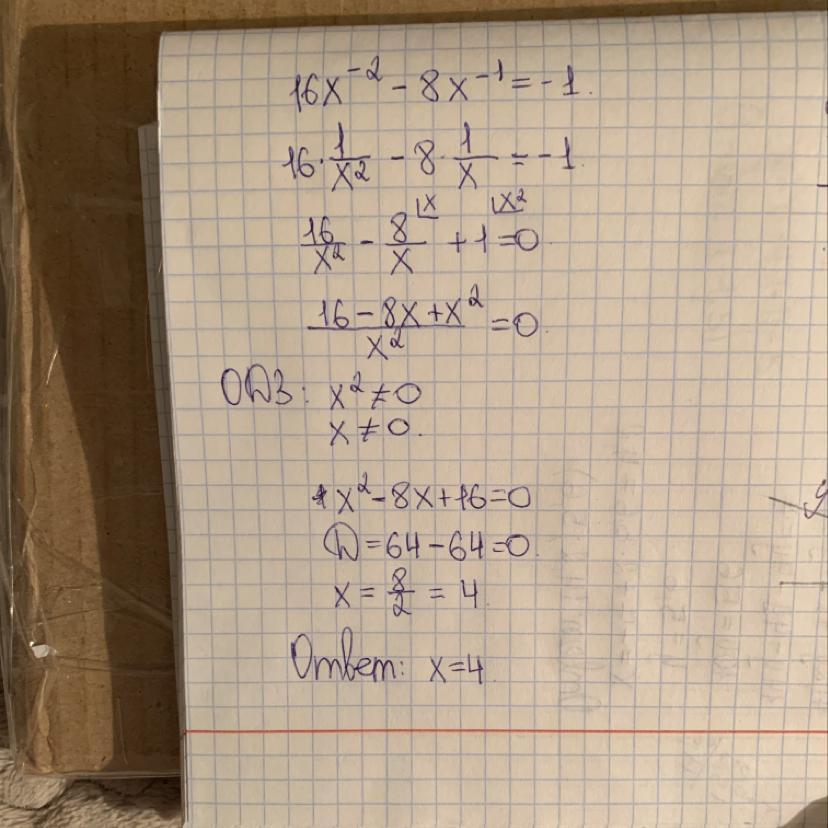 16x⁻² - 8x⁻¹ = -1.
16 · 1/x² - 8 · 1/x = -1
16/x² - 8/x ⌊x + 1 ⌊x² = 0
(16 - 8x + x²)/x² = 0.
ОДЗ: x² ≠ 0
x ≠ 0.
x² - 8x + 16 = 0
D = 64 - 64 = 0.
x = 8/2 = 4.
Ответ: x = 4.